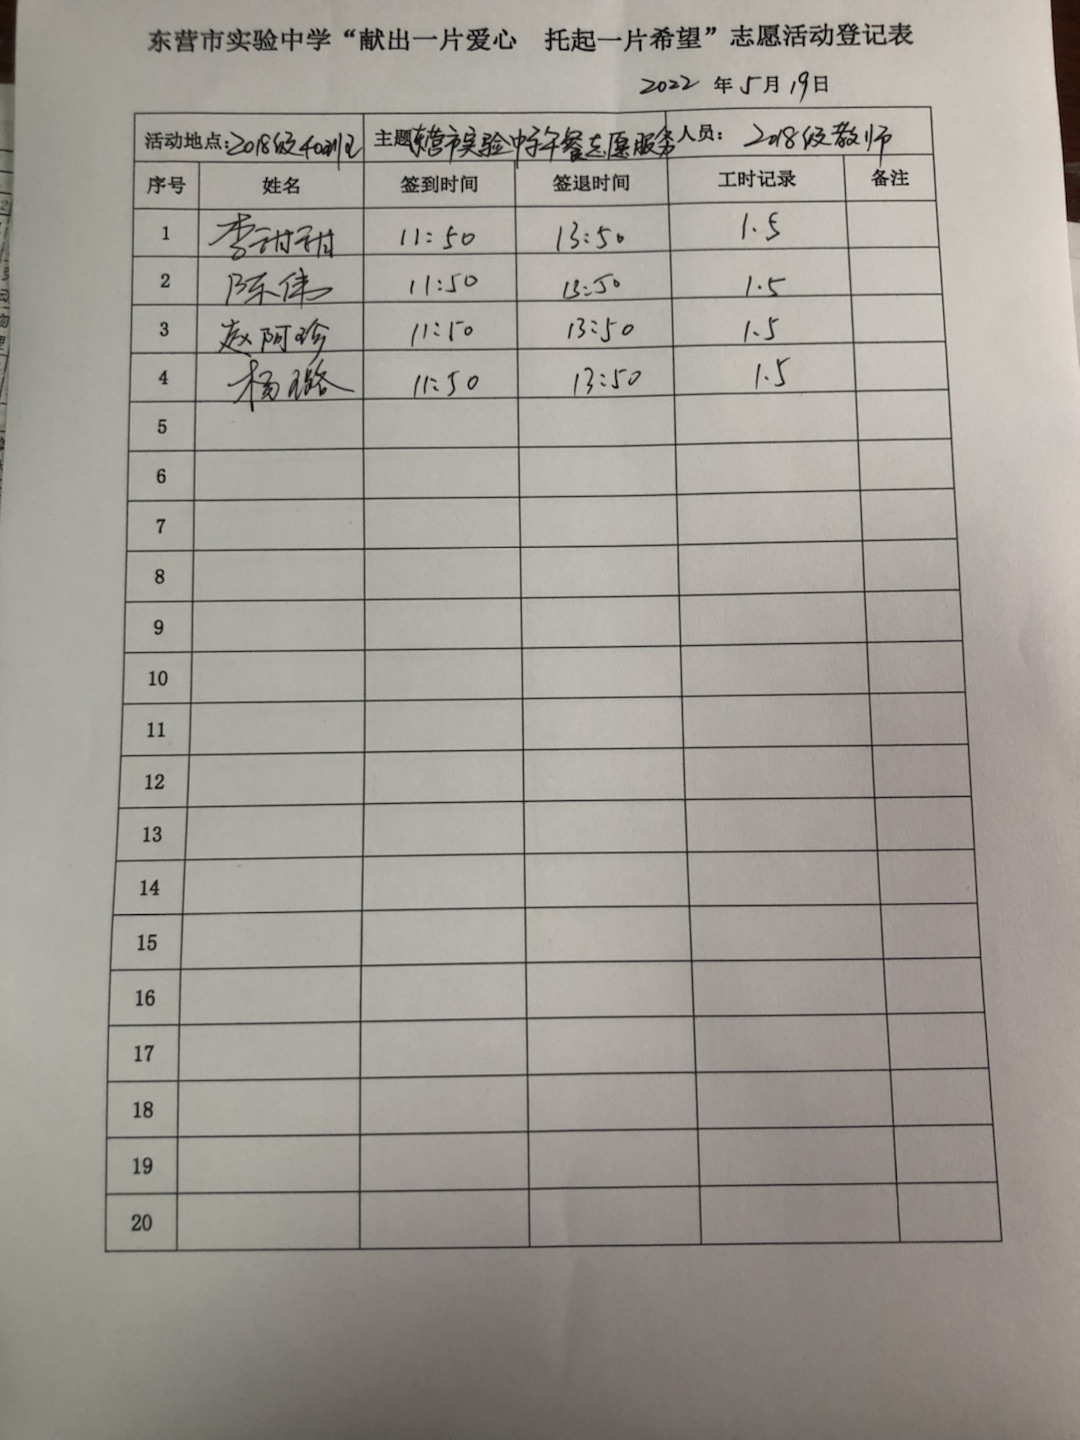 东营市实验中学“献出一片爱心 托起一片希望”志愿活动登记表
2022 年 5 月 19 日
活动地点:2018级 主题 东营市实验中学午餐志愿服务 人员: 2018级教师
序号 姓名 签到时间 签退时间 工时记录 备注
1 李甜甜 11:50 13:50 1.5
2 陈伟 11:50 13:50 1.5
3 赵阿珍 11:50 13:50 1.5
4 杨璐 11:50 13:50 1.5
5
6
7
8
9
10
11
12
13
14
15
16
17
18
19
20